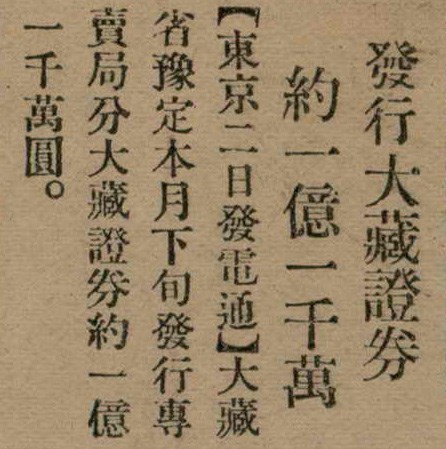 發行大藏證券
約一億一千萬
【東京二日發電通】大藏
省豫定本月下旬發行專
賣局分大藏證券約一億
一千萬圓。